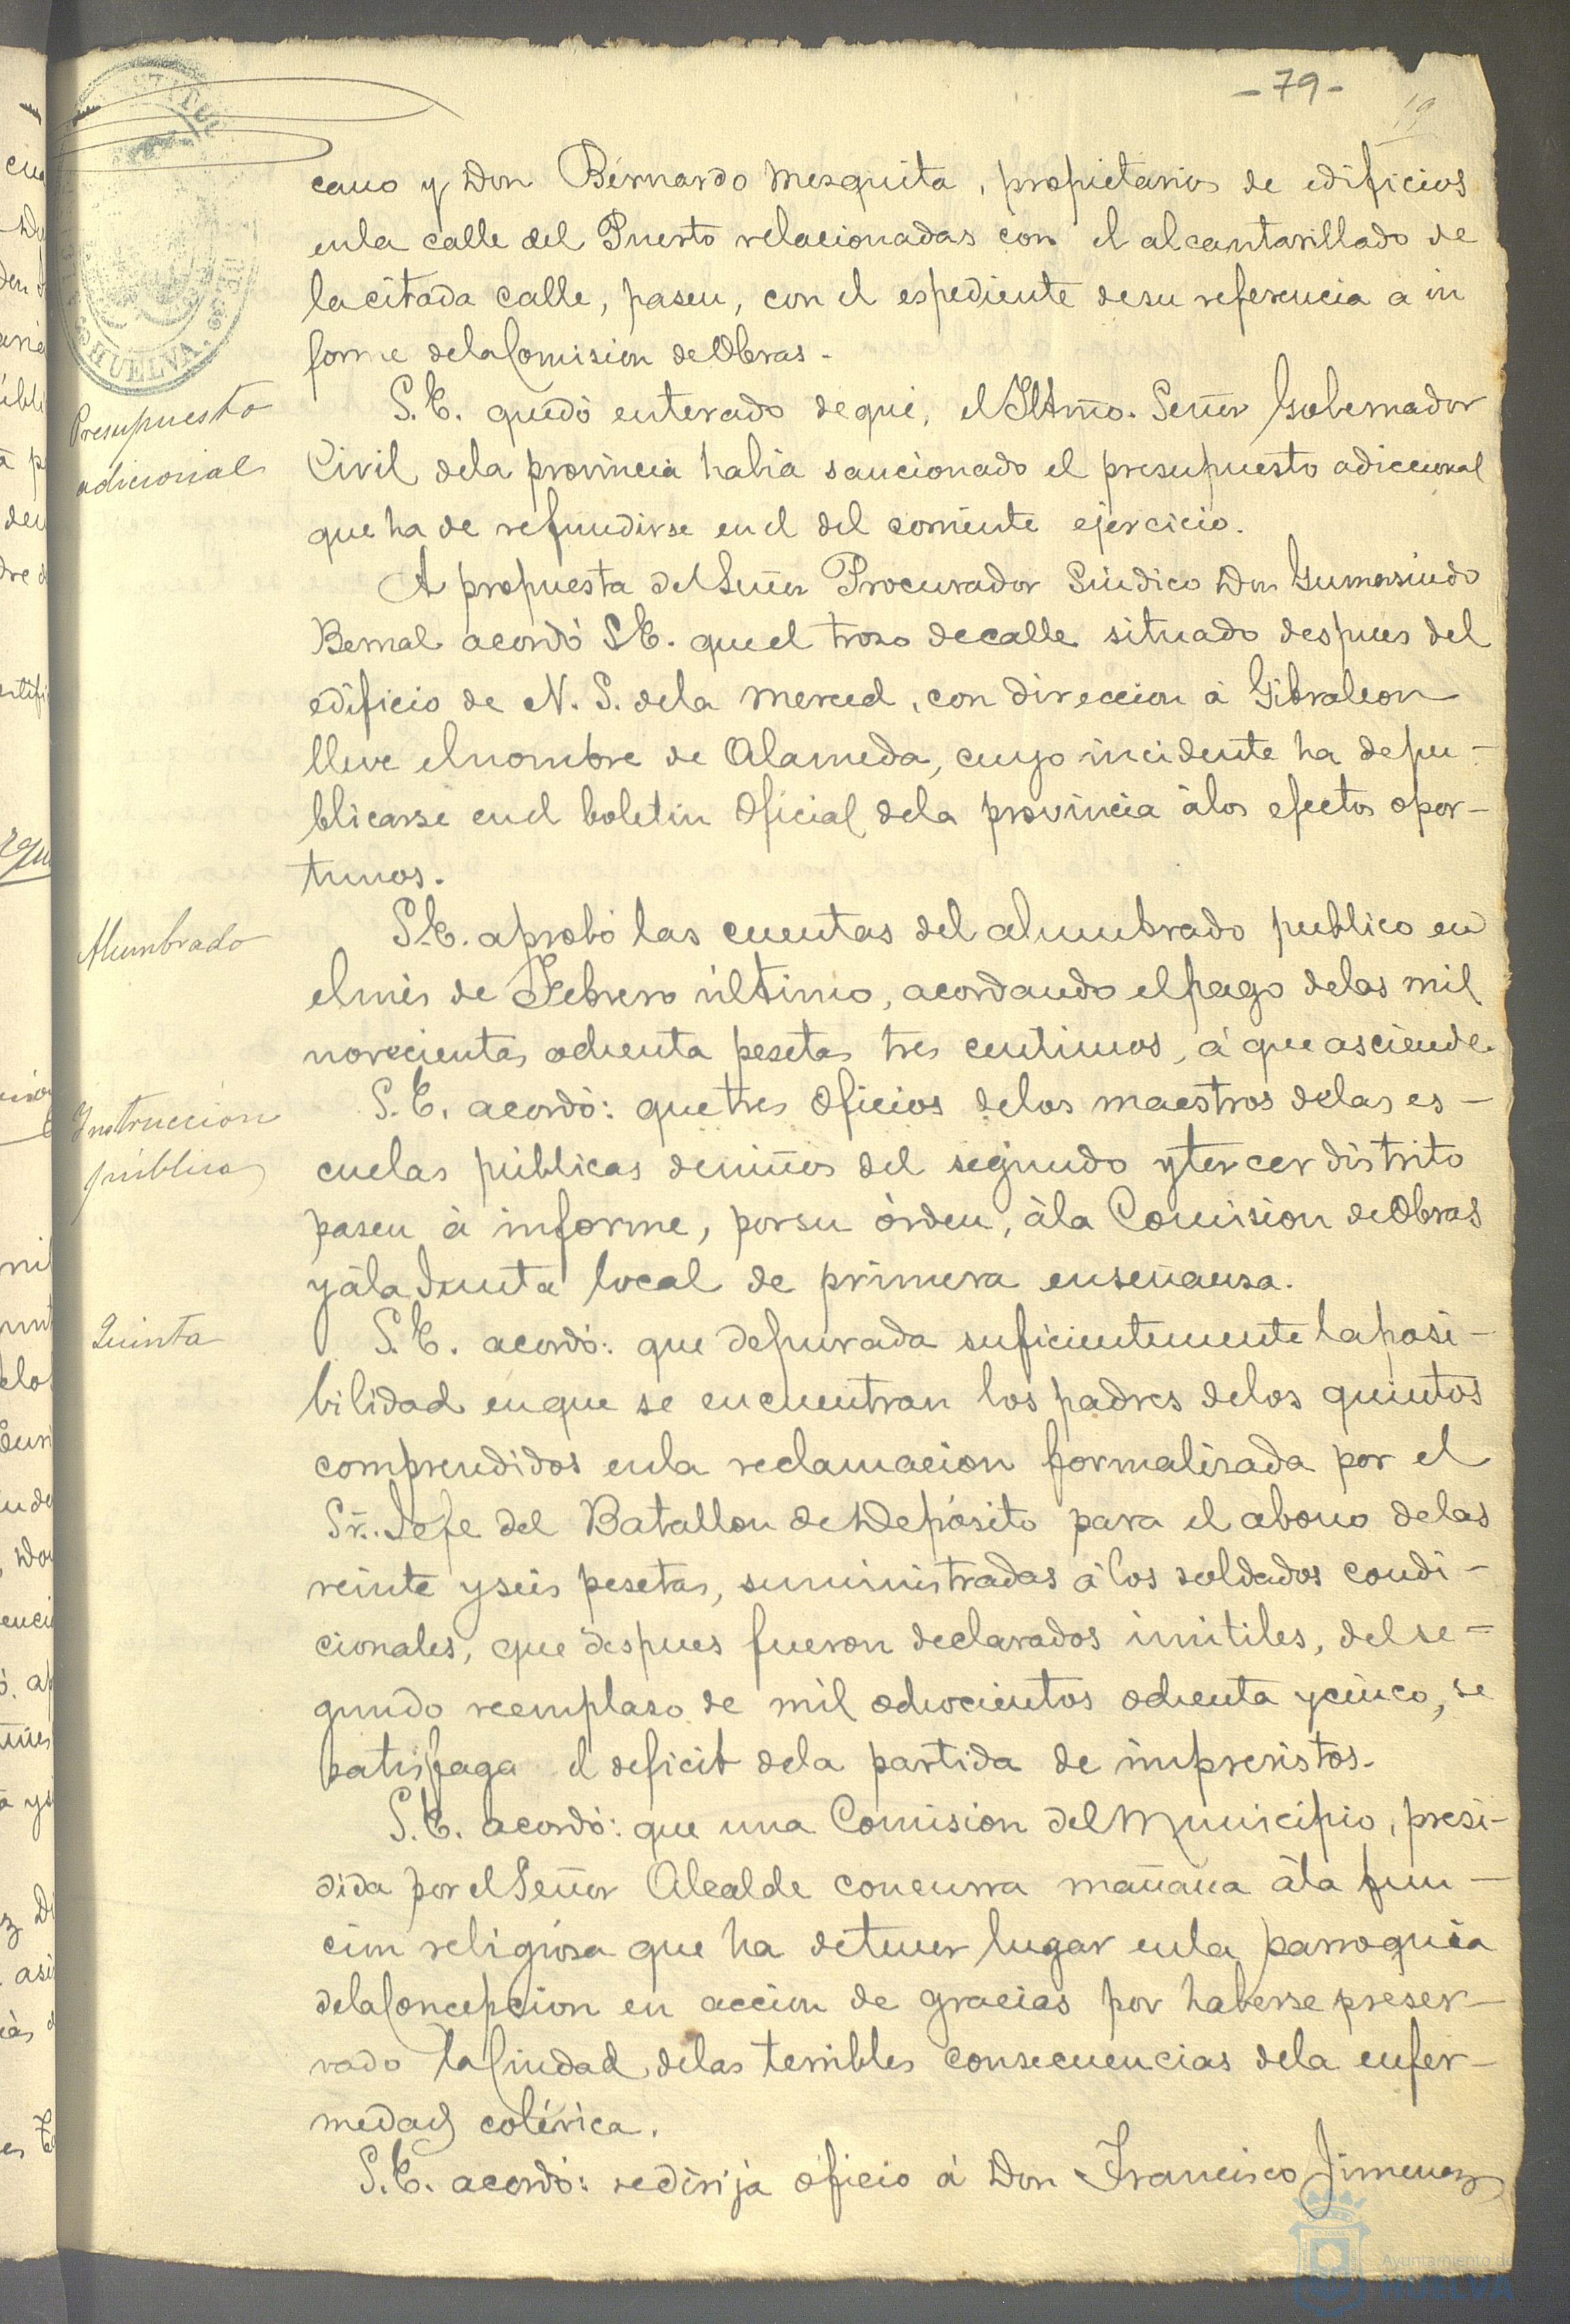 - 79 -
19
cano y Don Bernardo Mezquita, propietarios de edificios
enla calle del Puerto relacionadas con el alcantarillado de
la citada calle, pasen, con el espediente desu referencia a in
forme dela Comision de Obras.
Presupuesto
adicional
S. E. quedó enterado deque, el Iltmo. Señor Gobernador
Civil dela provincia habia sancionado el presupuesto adiccional
que ha de refundirse enel del corriente ejercicio.
A propuesta del Señor Procurador Sindico Don Gumersindo
Bernal acordó S.E. queel trozo decalle situado despues del
edificio de N. S. dela Merced, con direccion á Gibraleon
lleve elnombre de Alameda, cuyo incidente ha depu-
blicarse enel boletin Oficial dela provincia álos efectos opor-
tunos.
Alumbrado
S.E. aprobó las cuentas del alumbrado publico en
elmés de Febrero último, acordando elpago delas mil
novecientas ochenta pesetas tres centimos, á que asciende.
Instruccion
pública
S. E. acordó: quetres Oficios delos maestros delas es-
cuelas públicas deniños del segundo ytercer distrito
pasen á informe, porsu órden, ála Comision deObras
yála Junta local de primera enseñansa.
Quinta
S. E. acordó: que depurada suficientemente laposi-
bilidad enque se encuentran los padres delos quintos
comprendidos enla reclamacion formalizada por el
Sr. Jefe del Batallon deDepósito para el abono delas
veinte yseis pesetas, suministradas á los soldados condi-
cionales, que despues fueron declarados inútiles, delse-
gundo reemplazo de mil ochocientos ochenta ycinco, se
satisfaga el deficit dela partida de imprevistos.
S. E. acordó: que una Comision del Municipio, presi-
dida por el Señor Alcalde concurra mañana ála fun-
cion religiosa que ha detener lugar enla parroquia
dela Concepcion en accion de gracias por haberse preser-
vado la Ciudad delas terribles consecuencias dela enfer-
medad colérica.
S. E. acordó: sedirija oficio á Don Francisco Jimenez
HUELVA
Ayuntamiento de
HUELVA